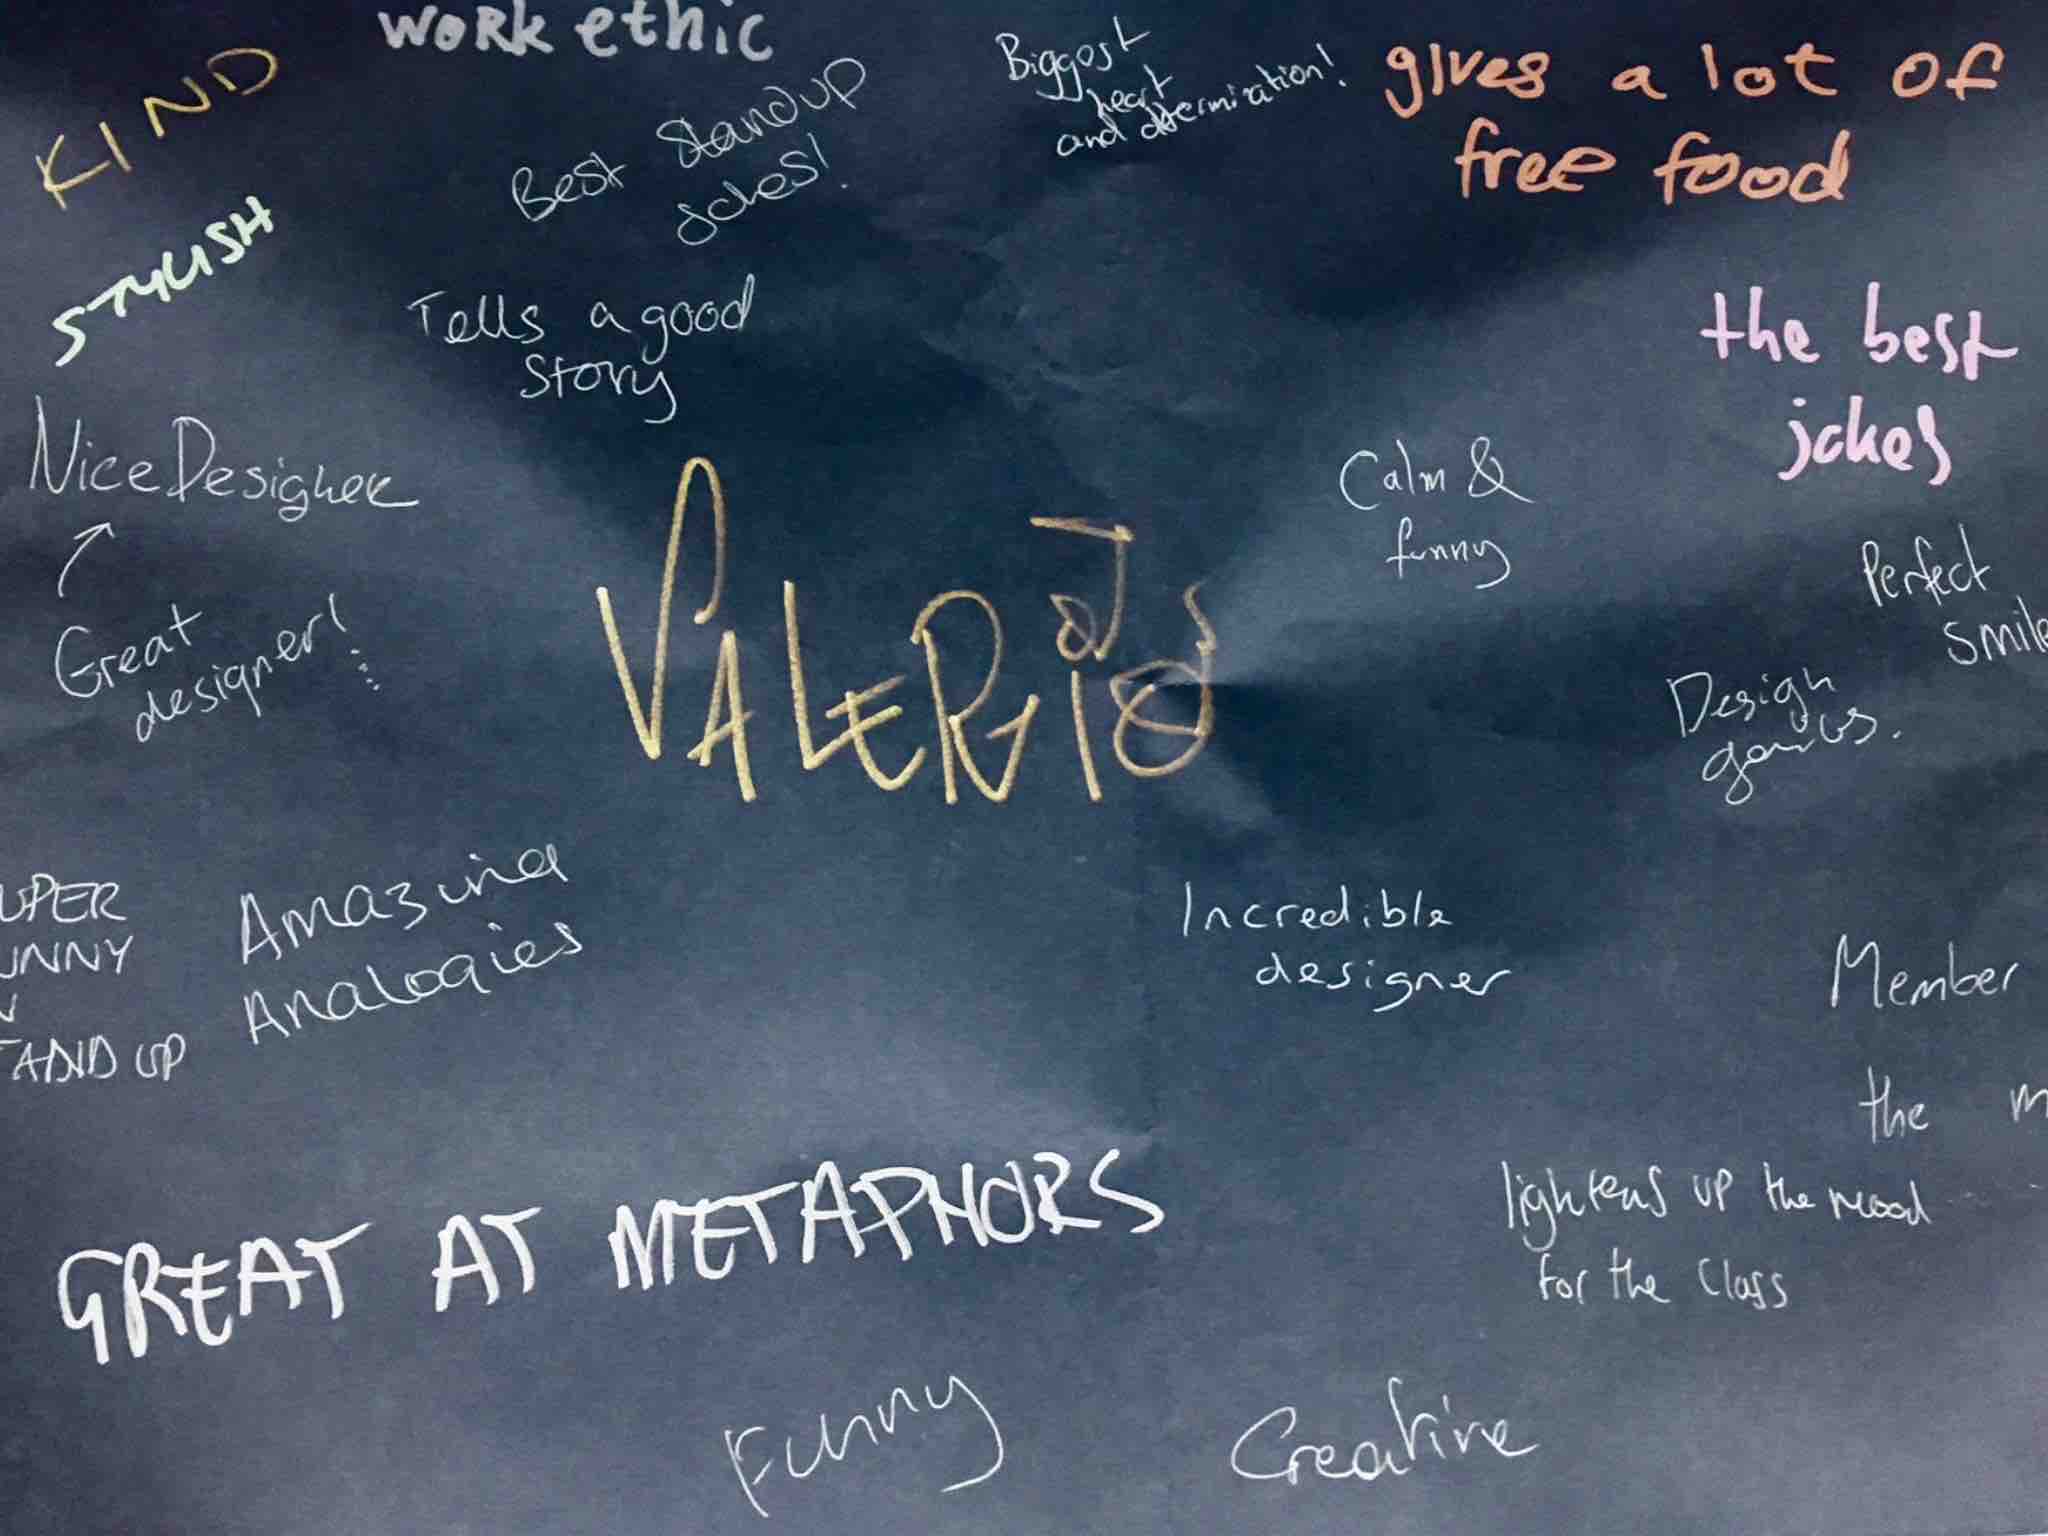 work ethic
KIND
Best Standup
jokes!
Biggest
heart
and determination!
gives a lot of
free food
STYLISH
Tells a good
Story
the best
jokes
Nice Designer
Calm &
funny
Great
designer!
VALERIO
Perfect
Smile
Design
UPER
UNNY
TAND UP
Amazing
Analogies
Incredible
designer
Member
the m
GREAT AT METAPHORS
lightens up the mood
for the class
Funny
Creative